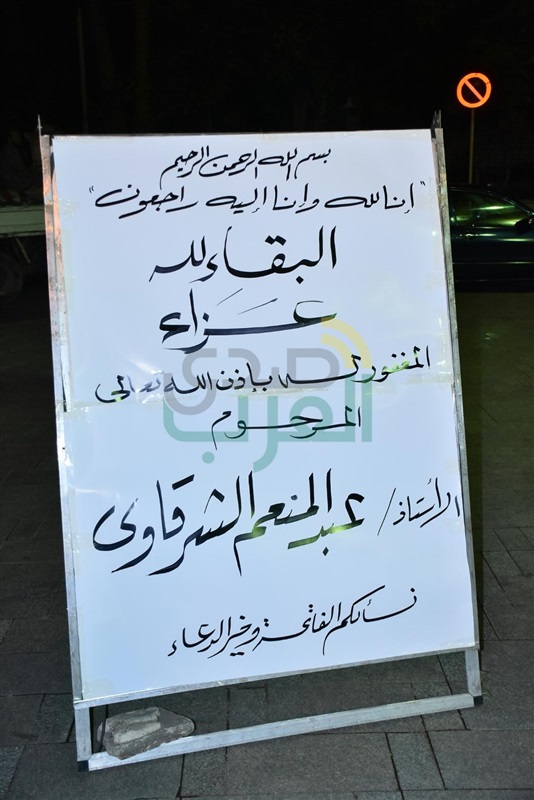 بسم الله الرحمن الرحيم
"إنا لله وإنا إليه راجعون"
البقاء لله
عزاء
المغفور له بإذن الله تعالى
المرحوم
الأستاذ / عبد المنعم الشرقاوى
نسألكم الفاتحة وخير الدعاء
صدى
العرب